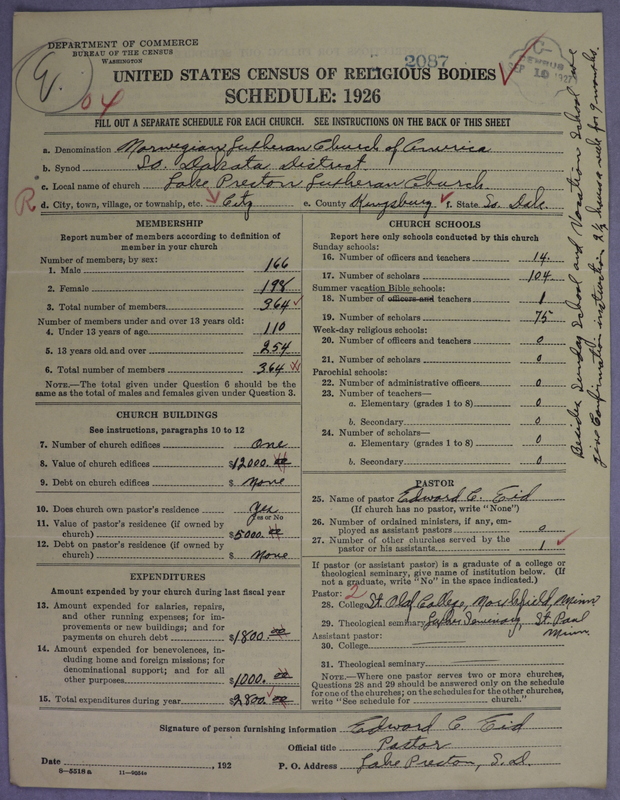 DEPARTMENT OF COMMERCE
BUREAU OF THE CENSUS
WASHINGTON
2087
SEP 10 1927
04
UNITED STATES CENSUS OF RELIGIOUS BODIES
SCHEDULE: 1926
FILL OUT A SEPARATE SCHEDULE FOR EACH CHURCH. SEE INSTRUCTIONS ON THE BACK OF THIS SHEET
a. Denomination Norwegian Lutheran Church of America
b. Synod So. Dakota District
c. Local name of church Lake Preston Lutheran Church
R d. City, town, village, or township, etc. City e. County Kingsburg f. State So. Dak.
MEMBERSHIP
Report number of members according to definition of
member in your church
Number of members, by sex:
1. Male 166
2. Female 198
3. Total number of members 364
Number of members under and over 13 years old:
4. Under 13 years of age 110
5. 13 years old and over 254
6. Total number of members 364
NOTE.—The total given under Question 6 should be the
same as the total of males and females given under Question 3.
CHURCH BUILDINGS
See instructions, paragraphs 10 to 12
7. Number of church edifices One
8. Value of church edifices $12000.00
9. Debt on church edifices $ None
10. Does church own pastor's residence Yes
Yes or No
11. Value of pastor's residence (if owned by
church) $5000.00
12. Debt on pastor's residence (if owned by
church) $ None
EXPENDITURES
Amount expended by your church during last fiscal year
13. Amount expended for salaries, repairs,
and other running expenses; for im-
provements or new buildings; and for
payments on church debt $1800.00
14. Amount expended for benevolences, in-
cluding home and foreign missions; for
denominational support; and for all
other purposes $1000.00
15. Total expenditures during year $2800.00
CHURCH SCHOOLS
Report here only schools conducted by this church
Sunday schools:
16. Number of officers and teachers 14.
17. Number of scholars 104.
Summer vacation Bible schools:
18. Number of officers and teachers 1
19. Number of scholars 75
Week-day religious schools:
20. Number of officers and teachers 0
21. Number of scholars 0
Parochial schools:
22. Number of administrative officers 0
23. Number of teachers—
a. Elementary (grades 1 to 8) 0
b. Secondary 0
24. Number of scholars—
a. Elementary (grades 1 to 8) 0
b. Secondary 0
PASTOR
25. Name of pastor Edward C. Eid
(If church has no pastor, write "None")
26. Number of ordained ministers, if any, em-
ployed as assistant pastors 0
27. Number of other churches served by the
pastor or his assistants 1
If pastor (or assistant pastor) is a graduate of a college or
theological seminary, give name of institution below. (If
not a graduate, write "No" in the space indicated.)
Pastor: 2
28. College St. Olaf College, Northfield, Minn
29. Theological seminary Luther Seminary, St. Paul
Minn.
Assistant pastor:
30. College
31. Theological seminary
NOTE.—Where one pastor serves two or more churches,
Questions 28 and 29 should be answered only on the schedule
for one of the churches; on the schedules for the other churches,
write "See schedule for church."
Besides Sunday School and Vacation School we
give Confirmation instruction 2½ hours a week for 9 months.
Signature of person furnishing information Edward C. Eid
Official title Pastor
Date , 192 P. O. Address Lake Preston, S.D.
8-5518a 11-9054